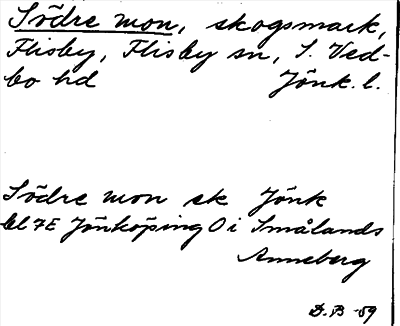 Södre mon, skogsmark,
Flisby, Flisby sn, S. Ved-
bo hd Jönk. l.
Södre mon sk Jönk
bl 7E Jönköping O i Smålands
Anneberg
D. B -59